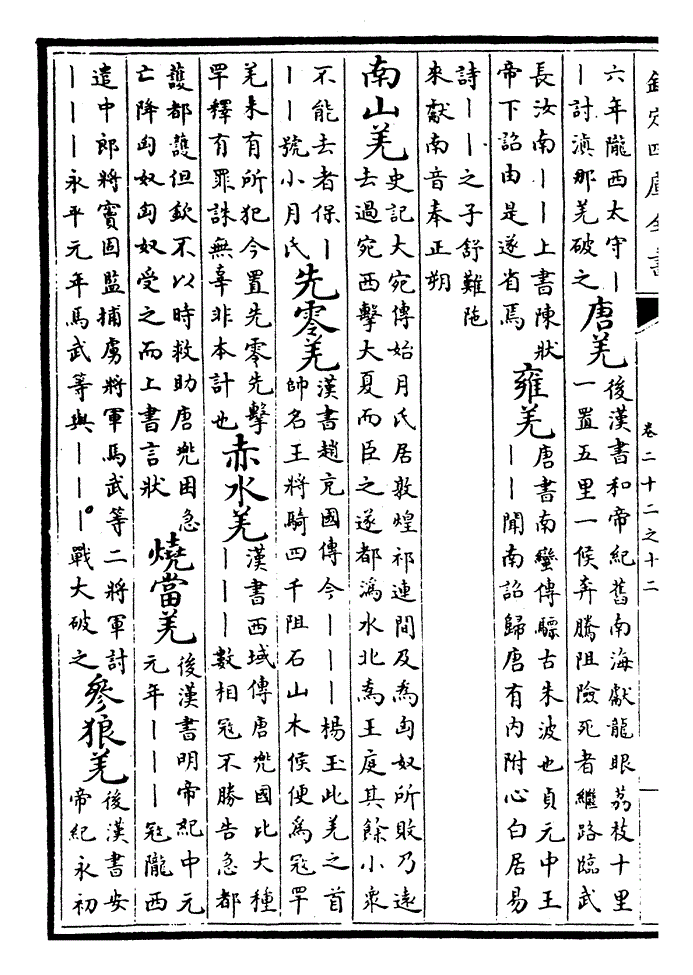 欽定四庫全書
卷二十二之十二
六年隴西太守丨
丨討滇那羌破之
唐羌
後漢書和帝紀舊南海獻龍眼荔枝十里
一置五里一候奔騰阻險死者繼路臨武
長汝南丨丨上書陳狀
帝下詔由是遂省焉
雍羌
唐書南蠻傳驃古朱波也貞元中王
丨丨聞南詔歸唐有内附心白居易
詩丨丨之子舒難陁
來獻南音奉正朔
南山羌
史記大宛傳始月氏居敦煌祁連間及為匈奴所敗乃遠
去過宛西擊大夏而臣之遂都媯水北為王庭其餘小衆
不能去者保丨
丨丨號小月氏
先零羌
漢書趙充國傳今丨丨丨楊玉此羌之首
帥名王將騎四千阻石山木候便為冦罕
羌未有所犯今置先零先擊
罕釋有罪誅無辜非本計也
赤水羌
漢書西域傳唐兜國比大種
丨丨丨數相冦不勝告急都
護都護但欽不以時救助唐兜困急
亡降匈奴匈奴受之而上書言狀
燒當羌
後漢書明帝紀中元
元年丨丨丨冦隴西
遣中郎將竇固監捕虜將軍馬武等二將軍討
丨丨丨永平元年馬武等與丨丨丨戰大破之
參狼羌
後漢書安
帝紀永初